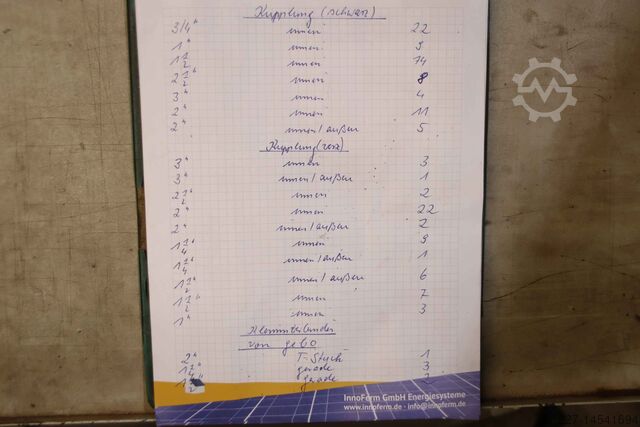 Kupplung (schwarz)
3/4" innen 22
1" innen 9
1 1/2" innen 74
2 1/2" innen 8
3" innen 4
2" innen 11
2" innen/außen 5
Kupplung (verz)
3" innen 3
3" innen/außen 1
2 1/2" innen 2
2" innen 22
2" innen/außen 2
1 1/4" innen 9
1 1/4" innen/außen 1
1 1/2" innen/außen 6
1 1/2" innen 7
1" innen 3
Klemmverbinder
von gebo
2" T-Stück 1
1 1/4" gerade 3
1 1/2" gerade 2
InnoFerm GmbH Energiesysteme
www.innoferm.de · info@innoferm.de